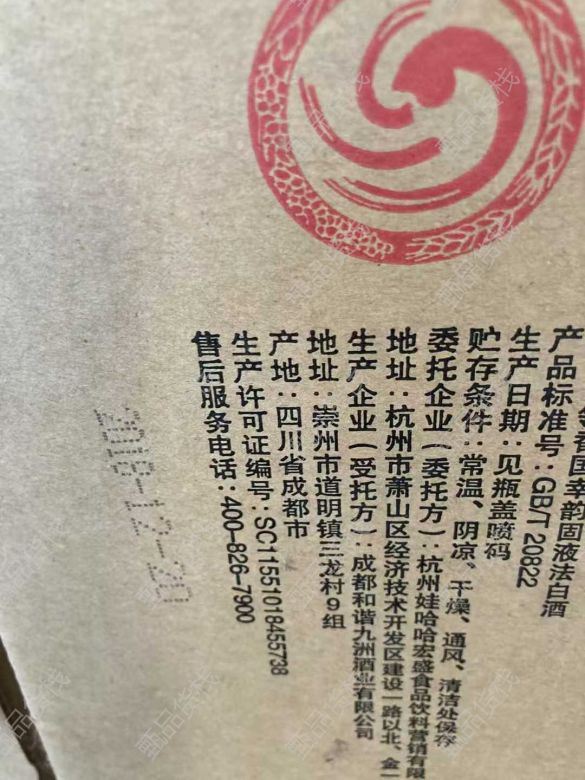 香国幸韵固液法白酒
产品标准号:GB/T 20822
生产日期:见瓶盖喷码
贮存条件:常温、阴凉、干燥、通风、清洁处保存
委托企业(委托方):杭州娃哈哈宏盛食品饮料营销有限
地址:杭州市萧山区经济技术开发区建设一路以北、金一
生产企业(受托方):成都和谐九洲酒业有限公司
地址:崇州市道明镇三龙村9组
产地:四川省成都市
生产许可证编号:SC11551018455738
售后服务电话:400-826-7900
2018-12-20
甄品货栈